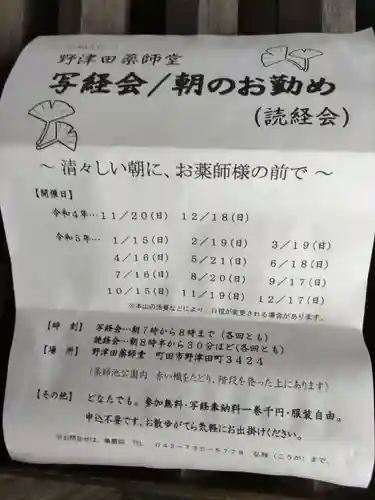 野津田薬師堂
写経会/朝のお勤め
(読経会)
~ 清々しい朝に、お薬師様の前で ~
【開催日】
令和4年…11/20(日) 12/18(日)
令和5年… 1/15(日) 2/19(日) 3/19(日)
4/16(日) 5/21(日) 6/18(日)
7/16(日) 8/20(日) 9/17(日)
10/15(日) 11/19(日) 12/17(日)
※本山の法要などにより、日程が変更される場合があります。
【時 刻】 写経会…朝7時から8時まで(各回とも)
読経会…朝8時半から30分ほど(各回とも)
【場 所】 野津田薬師堂 町田市野津田町3424
(薬師池公園内 赤い幟をたどり、階段を使った上にあります)
【その他】 どなたでも。参加無料・写経奉納料一巻千円・服装自由。
申込不要です。お散歩がてら気軽にお出掛けください。
※お問合せは、 TEL 弘翔(こうか)まで。